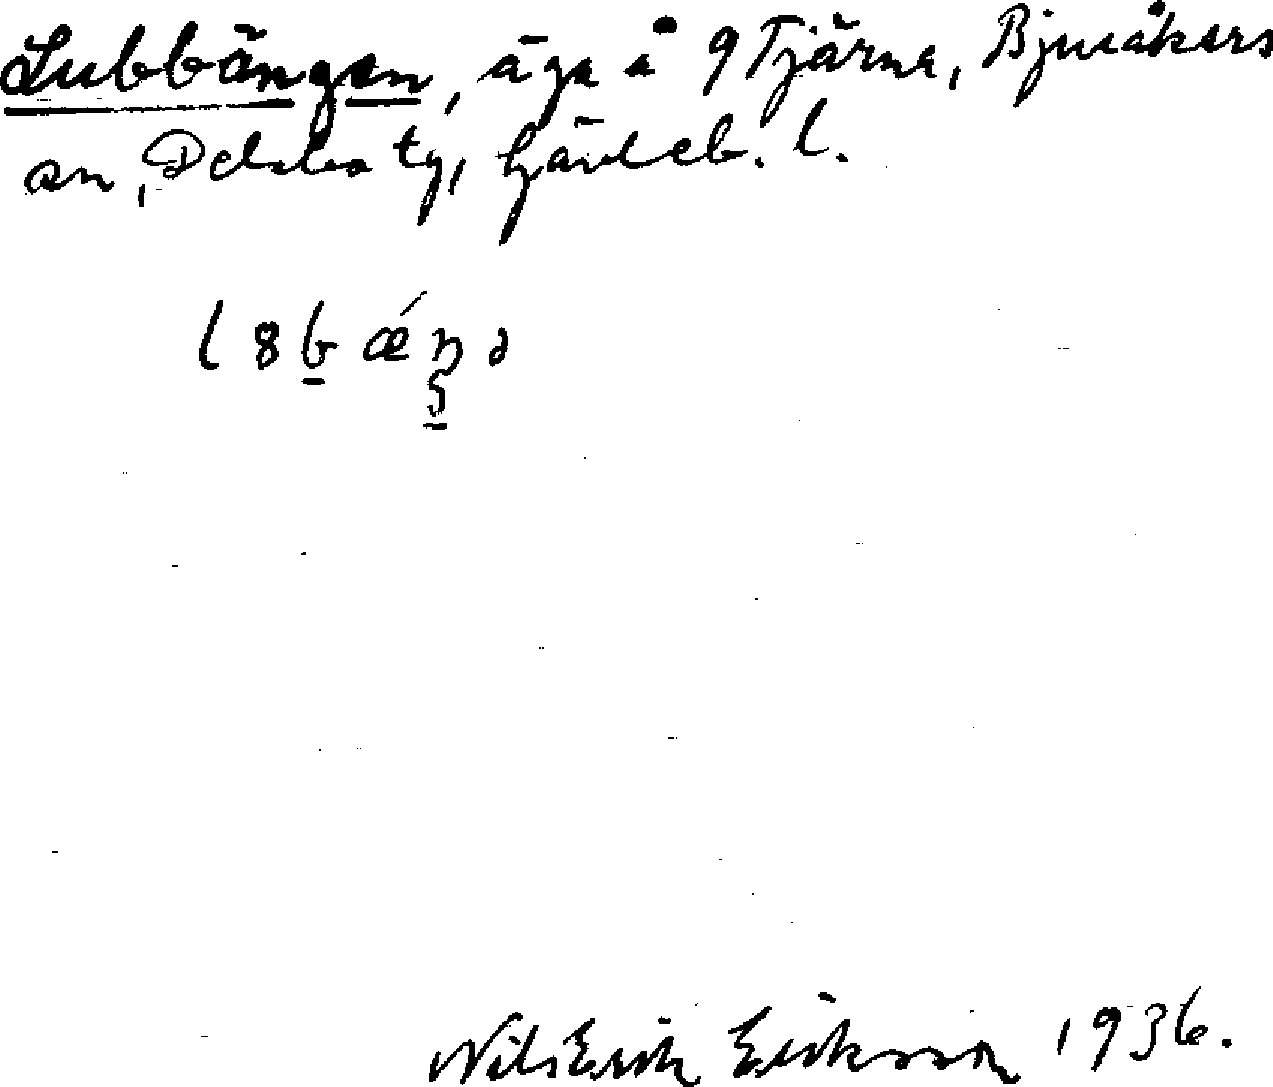 Lubbängen, äga å 9 Tjärna, Bjuråkers
sn, Delsbo tg, Gävleb. l.
l8bǽŋə
Nils Erik Eriksson 1936.